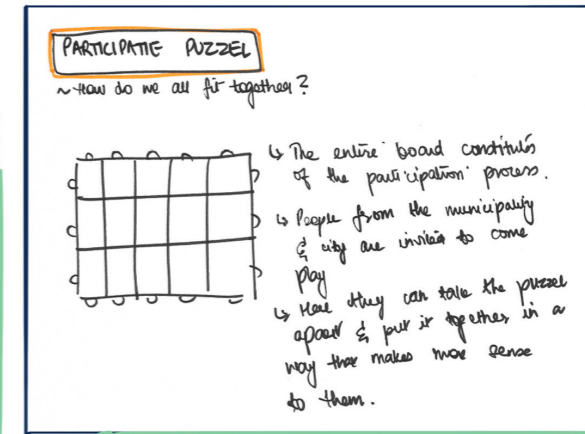 PARTICIPATIE PUZZEL
~ How do we all fit together?
↳ The entire board constitutes
of the participation process.
↳ People from the municipality
& city are invited to come
play
↳ Here they can take the puzzel
apart & put it together in a
way that makes more sense
to them.